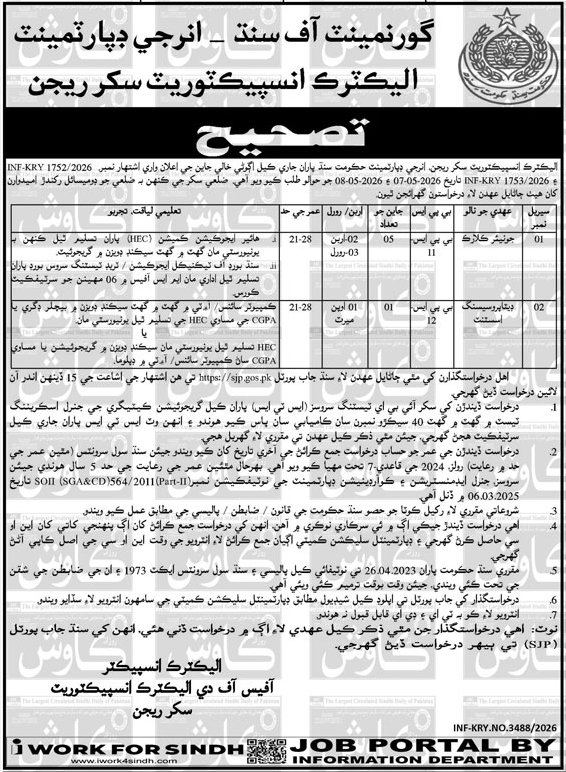 گورنمينٽ آف سنڌ _ انرجي ڊپارٽمينٽ
اليڪٽرڪ انسپيڪٽوريٽ سکر ريجن
تصحيح
اليڪٽرڪ انسپيڪٽوريٽ سکر ريجن، انرجي ڊپارٽمينٽ حڪومت سنڌ پاران جاري ڪيل اڳوڻي خالي جاين جي اعلان واري اشتهار نمبر. INF-KRY 1752/2026
۽ INF-KRY 1753/2026 تاريخ 07-05-2026 ۽ 08-05-2026 جو حوالو طلب ڪيو ويو آهي. ضلعي سکر جي ڪنهن به ضلعي جو ڊوميسائل رکندڙ اميدوارن
کان هيٺ ڄاڻايل عهدن لاءِ درخواستون گهرائجن ٿيون.
سيريل نمبر
عهدي جو نالو
بي پي ايس.
جاين جو تعداد
اربن/ رورل
عمر جي حد
تعليمي لياقت، تجربو
01
جونيئر ڪلارڪ
بي پي ايس. 11
05
02-اربن
03-رورل
21-28
i. هائير ايجوڪيشن ڪميشن (HEC) پاران تسليم ٿيل ڪنهن به
يونيورسٽي مان گهٽ ۾ گهٽ سيڪنڊ ڊويزن ۾ گريجوئيٽ.
ii. سنڌ بورڊ آف ٽيڪنيڪل ايجوڪيشن / ٽريڊ ٽيسٽنگ سروس بورڊ پاران
تسليم ٿيل اداري مان ايم ايس آفيس ۾ 06 مهينن جو سرٽيفڪيٽ
ڪورس.
02
ڊيٽاپروسيسنگ اسسٽنٽ
بي پي ايس. 12
01
01 اوپن ميرٽ
21-28
ڪمپيوٽر سائنس/ آءِ ٽي ۾ گهٽ ۾ گهٽ سيڪنڊ ڊويزن ۾ بيچلر ڊگري يا
CGPA جي مساوي HEC جي تسليم ٿيل يونيورسٽي مان.
يا
HEC تسليم ٿيل يونيورسٽي مان سيڪنڊ ڊويزن ۾ گريجوئيشن يا مساوي
CGPA سان ڪمپيوٽر سائنس/ آءِ ٽي ۾ ڊپلوما.
اهل درخواستگذارن کي مٿي ڄاڻايل عهدن لاءِ سنڌ جاب پورٽل https://sjp.gos.pk تي هن اشتهار جي اشاعت جي 15 ڏينهن اندر آن
لائين درخواست ڏيڻ گهرجي.
1. درخواست ڏيندڙن کي سکر آئي بي اي ٽيسٽنگ سروسز (ايس ٽي ايس) پاران ڪيل گريجوئيشن ڪيٽيگري جي جنرل اسڪريننگ
ٽيسٽ ۾ گهٽ ۾ گهٽ 40 سيڪڙو نمبرن سان ڪاميابي سان پاس ڪيو هوندو ۽ انهن وٽ ايس ٽي ايس پاران جاري ڪيل
سرٽيفڪيٽ هجڻ گهرجي، جيئن مٿي ذڪر ڪيل عهدن تي مقرري لاءِ گهربل هجي.
2. درخواست ڏيندڙن جي عمر جو حساب درخواست جمع ڪرائڻ جي آخري تاريخ کان ڪيو ويندو جيئن سنڌ سول سرونٽس (مٿين عمر جي
حد ۾ رعايت) رولز، 2024 جي قاعدي-7 تحت مهيا ڪيو ويو آهي. بهرحال مٿئين عمر جي رعايت جي حد 5 سال هوندي جيئن
سروسز، جنرل ايڊمنسٽريشن ۽ ڪوآرڊينيشن ڊپارٽمينٽ جي نوٽيفڪيشن نمبر.SOII (SGA&CD)564/2011(Part-II) تاريخ
06.03.2025 ۾ ڏنل آهي.
3. شروعاتي مقرري لاءِ رکيل ڪوٽا جو حصو سنڌ حڪومت جي قانون / ضابطن / پاليسي جي مطابق عمل ڪيو ويندو.
4. اهي درخواست ڏيندڙ جيڪي اڳ ۾ ئي سرڪاري نوڪري ۾ آهن، انهن کي درخواست جمع ڪرائڻ کان اڳ پنهنجي کاتي کان اين او
سي حاصل ڪرڻ گهرجي ۽ ڊپارٽمينٽل سليڪشن ڪميٽي اڳيان جمع ڪرائڻ لاءِ انٽرويو جي وقت اين او سي جي اصل ڪاپي آڻڻ
گهرجي.
5. مقرري سنڌ حڪومت پاران 26.04.2023 تي نوٽيفائي ڪيل پاليسي ۽ سنڌ سول سرونٽس ايڪٽ 1973 ۽ ان جي ضابطن جي شقن
جي تحت ڪئي ويندي، جيئن وقت بوقت ترميم ڪئي ويئي آهي.
6. درخواستگذار کي جاب پورٽل تي اپلوڊ ڪيل شيڊيول مطابق ڊپارٽمينٽل سليڪشن ڪميٽي جي سامهون انٽرويو لاءِ سڏايو ويندو.
7. انٽرويو لاءِ ڪو به ٽي اي ۽ ڊي اي قابل قبول نه هوندو.
نوٽ: اهي درخواستگذار جن مٿي ذڪر ڪيل عهدي لاءِ اڳ ۾ درخواست ڏني هئي، انهن کي سنڌ جاب پورٽل
(SJP) تي ٻيهر درخواست ڏيڻ گهرجي.
اليڪٽرڪ انسپيڪٽر
آفيس آف دي اليڪٽرڪ انسپيڪٽوريٽ
سکر ريجن
INF-KRY.NO.3488/2026
I WORK FOR SINDH
www.iwork4sindh.com
JOB PORTAL BY
INFORMATION DEPARTMENT